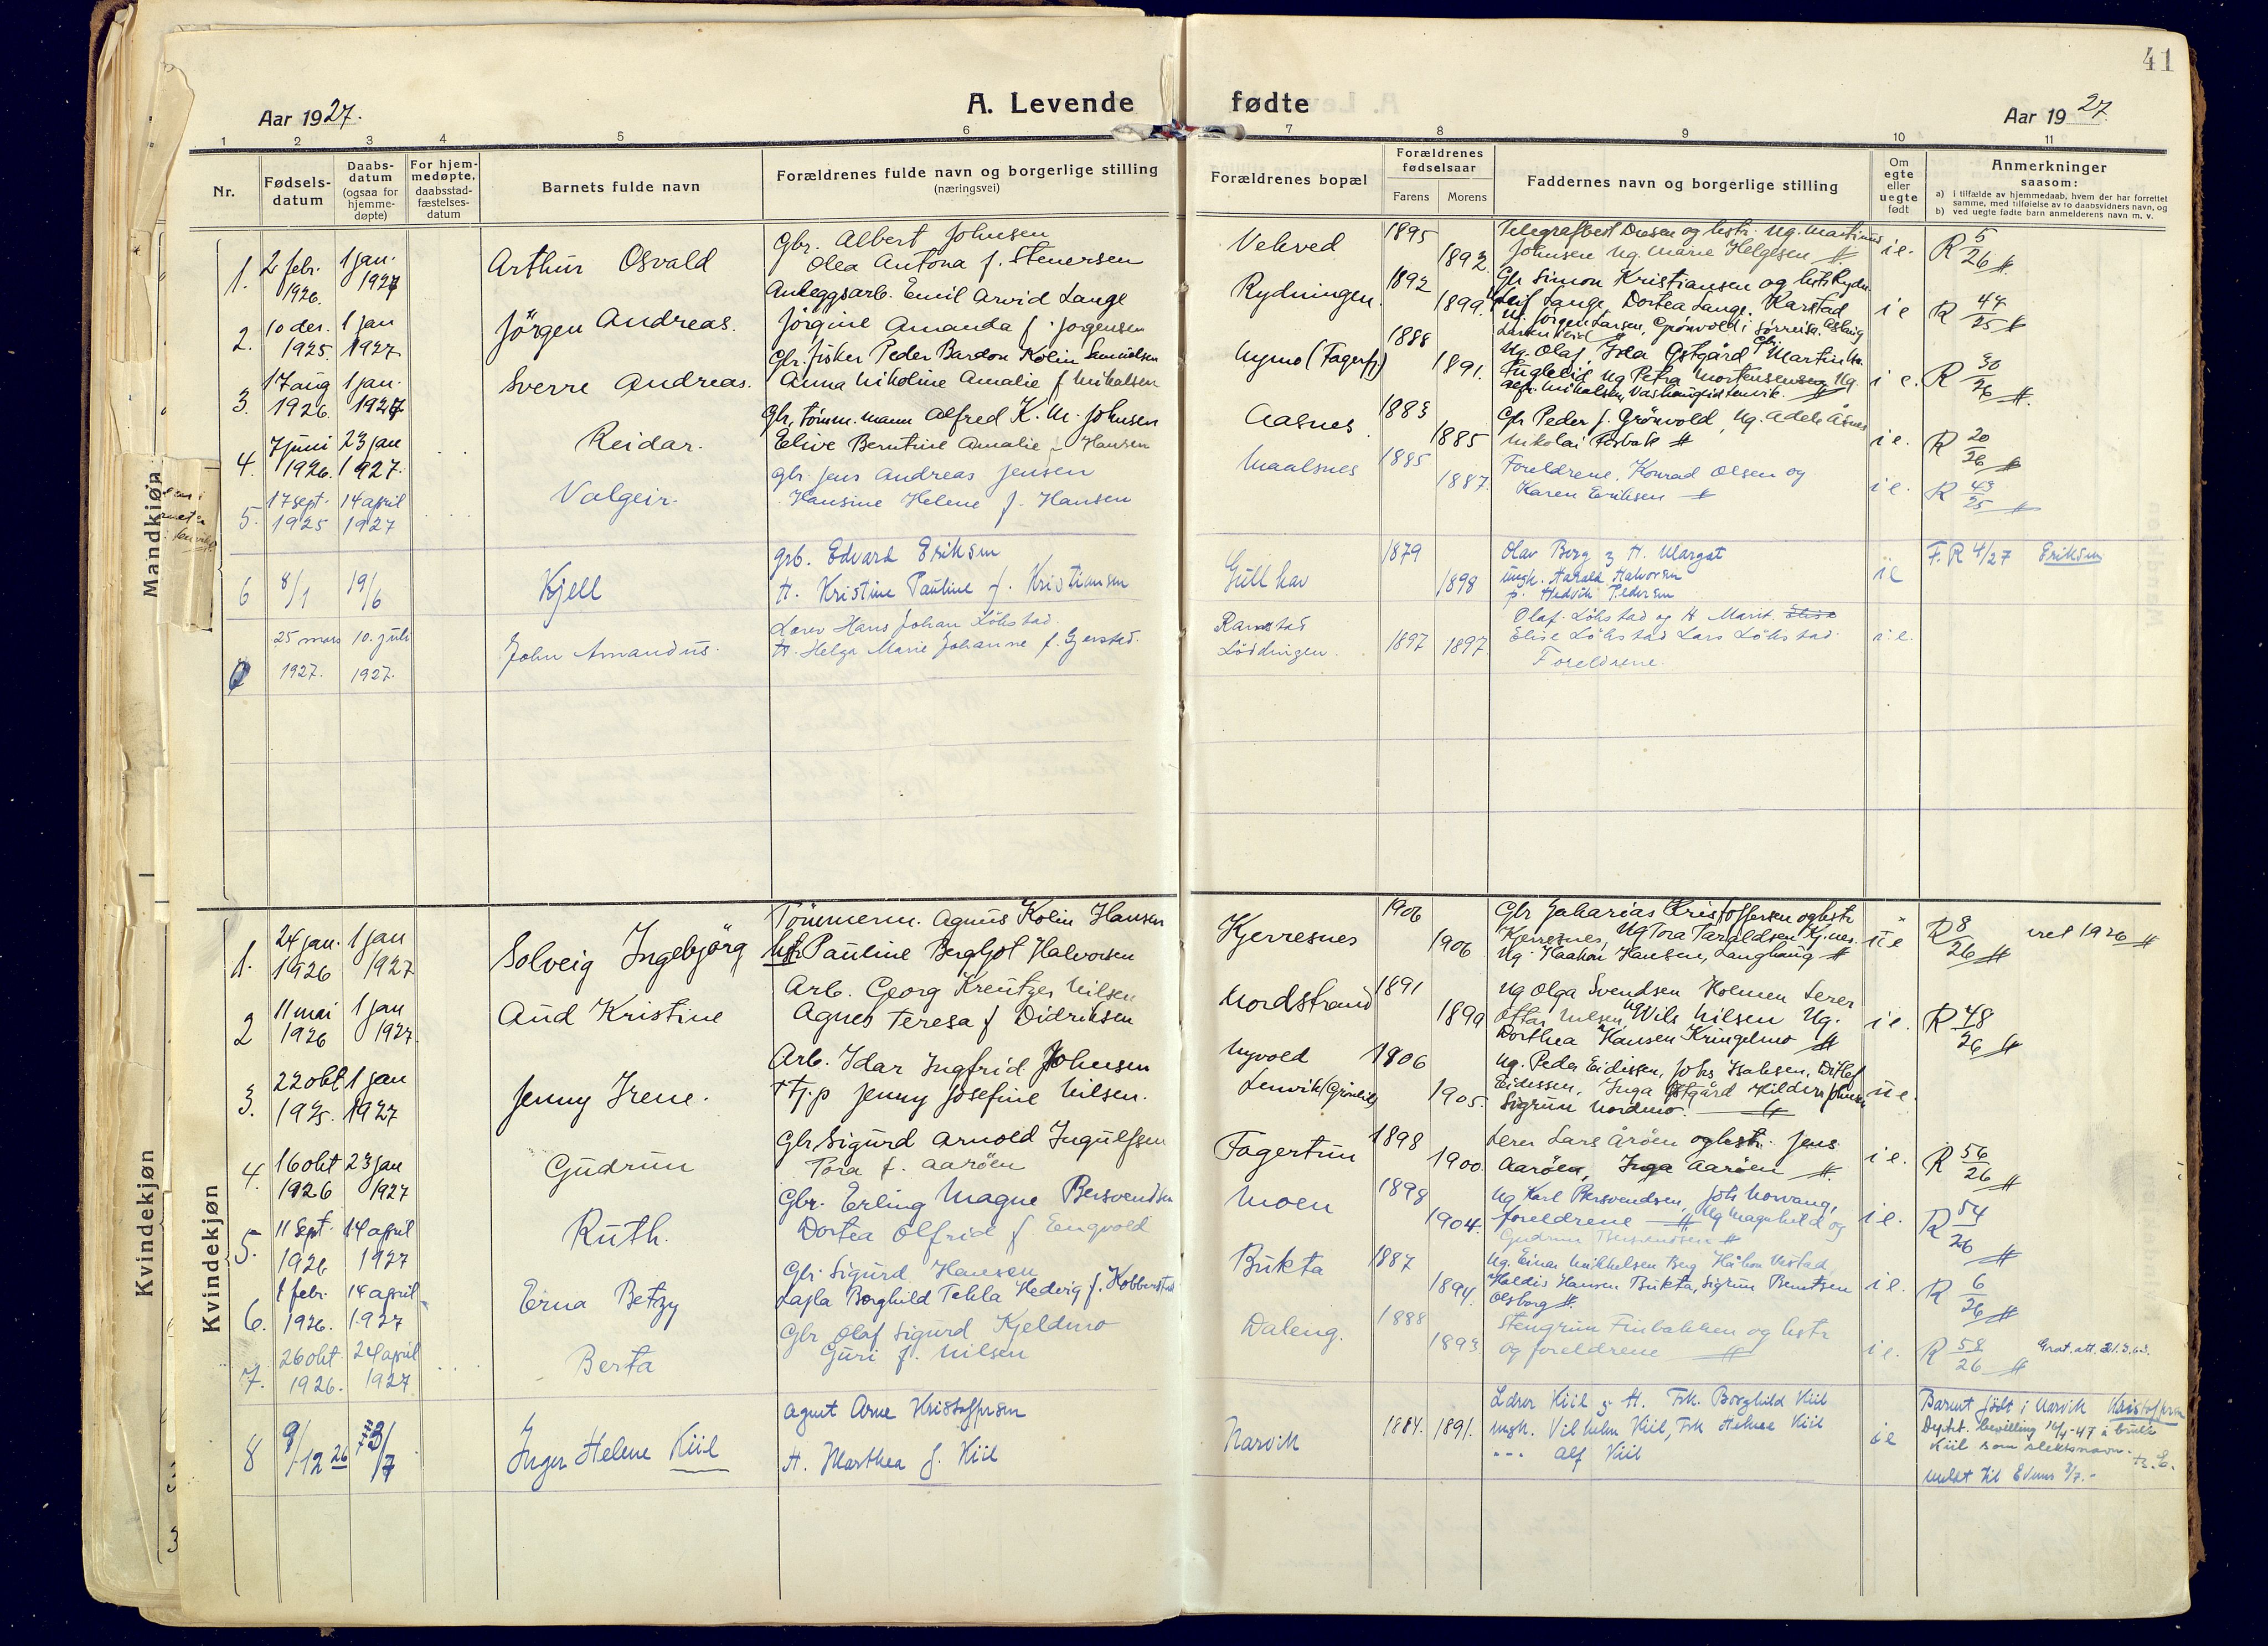 41
A. Levende fødte
Aar 1927.
Aar 1927.
1 2 3 4 5 6 7 8 9 10 11
Nr.
Fødsels-
datum
Daabs-
datum
(ogsaa for
hjemme-
døpte)
For hjem-
medøpte,
daabsstad-
fæstelses-
datum
Barnets fulde navn
Forældrenes fulde navn og borgerlige stilling
(næringsvei)
Forældrenes bopæl
Forældrenes
fødselsaar
Farens Morens
Faddernes navn og borgerlige stilling
Om
egte
eller
uegte
født
Anmerkninger
saasom:
a) i tilfælde av hjemmedaab, hvem der har forrettet
samme, med tilføielse av to daabsvidners navn, og
b) ved uegte fødte barn anmelderens navn m. v.
Mandkjøn
1. 2 febr. 1926. 1 jan. 1927 Arthur Osvald
Gbr. Albert Johnsen
Olea Antona f. Stenersen
Vekved 1895 1892
og hstr. Ug. Martinus
Johnsen Ug. Marie Helgesen
i e. R 5/26
2. 10 des. 1925. 1 jan 1927 Jörgen Andreas.
Anleggsarb. Emil Arvid Lange
Jörgine Amanda f. Jörgensen
Rydningen. 1892 1899.
Gbr Simon Kristiansen og hstr
Leif Lange, Dortea Lange, Karstad
Jörgen Larsen, Grönvold i Sörreisa.
i e R 44/25
3. 17 aug 1926. 1 jan. 1927 Sverre Andreas.
Gbr. fisker Peder Bardon Kolin Samuelsen
Anna Nikoline Amalie f Mikalsen
Nymo (Fagerfj) 1888 1891.
Ug. Olaf, Gda Östgård
Fugleli, Ug Petra Mortensen Ug.
i e. R 30/26
4. 7 juni 1926. 23 jan 1927. Reidar.
Gbr, tömm. mann Alfred K. M. Johnsen
Elive Berntine Amalie f Hansen
Aasnes 1883 1885
Gbr Peder J. Grönvold, Ug. Adele Åsnes
Nikolai
i e. R 20/26
5. 17 sept. 1925 14 april 1927 Valgeir.
Gbr Jens Andreas Jensen
Hansine Helene f. Hansen
Maalsnes 1885 1887.
Foreldrene, Konrad Olsen og
Karen Eriksen
i e. R 43/25
6 8/1 19/6 Kjell
grb. Edvard Eriksen
H. Kristine Pauline f. Kristiansen
Gullhav 1879 1898
Olav Berg og H. Margat
ungk. Harald Halvorsen
p. Hedvik Pedersen
ie F.R 4/27 Eriksen
25 mars 1927. 10. juli 1927. John Amandus.
Lærer Hans Johan Lökstad.
H. Helga Marie Johanne f. Gjerstad.
Ramstad
Löddingen. 1897 1897
Olaf. Löhstad og H Marit.
Elise Löhstad Lars Löhstad.
Foreldrene.
i e.
Kvindekjøn
Kvindekjøn
1. 24 jan. 1926 1 jan 1927 Solveig Ingebjörg
Tömmerm. Agnus Kolin Hansen
Pauline Bergljot Halvorsen
Kjerresnes 1906 1906
Gbr Zakarias Kristoffersen og hstr
Kjerresnes, Ug Tora Taraldsen Kj.nes.
Ug. Haakon Hansen, Langhaug
ue R 8/26 1926
2 11 mai 1926 1 jan 1927. Aud Kristine
Arb. Georg Kreutzer Nilsen
Agnes Teresa f Didriksen
Nordstrand 1891 1899
Ug Olga Svendsen Holmen Lerer
Ottar Nilsen, Ug Nils Nilsen Ug.
Dorthea Hansen Kringelmo
i e. R 48/26
3. 22 okt 1925. 1 jan 1927 Jenny Irene.
Arb. Idar Ingfrid Johnsen
Tj.p Jenny Josefine Nilsen.
Nyvold
Lenvik 1906 1905.
Ug. Peder Eidissen, Johs Isaksen, Ditlef
Eidissen, Inga Östgård Hildur Johnsen
Sigrun Nordmo.
u e.
4. 16 okt 1926 23 jan 1927 Gudrun
Gbr Sigurd Arnold Ingulfsen
Tora f. Aaröen
Fagertun 1898 1900.
Lerer Lars Åröen og hstr. Jens
Aaröen, Inga Aaröen
i e. R 56/26
5. 11 sept. 1926 14 april 1927 Ruth.
Gbr. Erling Magne Bersvendsen
Dortea Olfrid f Engvold
Moen 1898 1904.
Ug Karl Bersvendsen, Joh Norvang,
foreldrene Ug Magnhild og
Gudrun Bersvendsen
i e. R 54/26
6. 1 febr. 1926. 14 april 1927 Erna Betzy
Gbr. Sigurd Hansen
Lajla Borghild Tekla Hedvig f.
Bukta 1887 1894.
Ug. Einar Mikkelsen Berg Håkon Vestad,
Haldis Hansen Bukta, Sigrun Berntsen
Olsborg
i e. R 6/26
7. 26 okt 1926. 24 april 1927 Berta
Gbr Olaf Sigurd Kjeldmo
Guri f. Nilsen
Daleng. 1888 1893
Stengrim Finbakken og hstr
og foreldrene
i e. R 58/26 Grat. att. 21.3.63.
8 9/12 26 3/7 Inger Helene Kiil
agent Arne Kristoffersen
H. Marthea f. Kiil
Narvik 1884. 1891.
Lærer Kiil og H. Frk. Borghild Kiil
ungk. Vilhelm Kiil, Frk Helene Kiil
--- Alf Kiil
ie
Barnet födt i Narvik Kristoffersen
Deptet. bevilling 16/4-47 å bruke
Kiil som slektsnavn.
meldt til